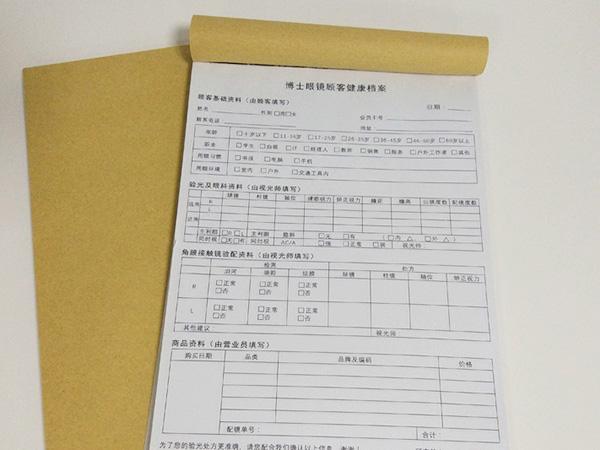 博士眼镜顾客健康档案
顾客基础资料（由顾客填写） 日期：
姓名 性别□男□女 会员卡号
联系电话 地址
年龄 □十岁以下 □11-16岁 □17-25岁 □26-35岁 □36-45岁 □46-60岁 □60岁以上
职业 □学生 □白领 □IT □经理人 □教师 □销售 □服务 □户外工作者 □其他
用眼习惯 □书报 □电脑 □手机
用眼环境 □室内 □户外 □交通工具内
验光及眼科资料（由视光师填写）
球镜 柱镜 轴位 裸眼视力 矫正视力 瞳距 瞳高
R
L
主利眼 □R □L 主利眼 □无 □有
同时视 □无□有 同时视 AC/A □强 □正常 □弱 视光师
角膜接触镜验配资料（由视光师填写）
检测 处方
泪河 结膜 球镜 柱镜 轴位 矫正视力
R □正常 □正常 □正常
□否 □否 □否
L □正常 □正常 □正常
□否 □否 □否
其他建议： 视光师
商品资料（由营业员填写）
购买日期 品类 品牌及编码 价格
配镜单号： 合计：
为了您的验光处方更准确，请您配合我们确认以上信息，谢谢！